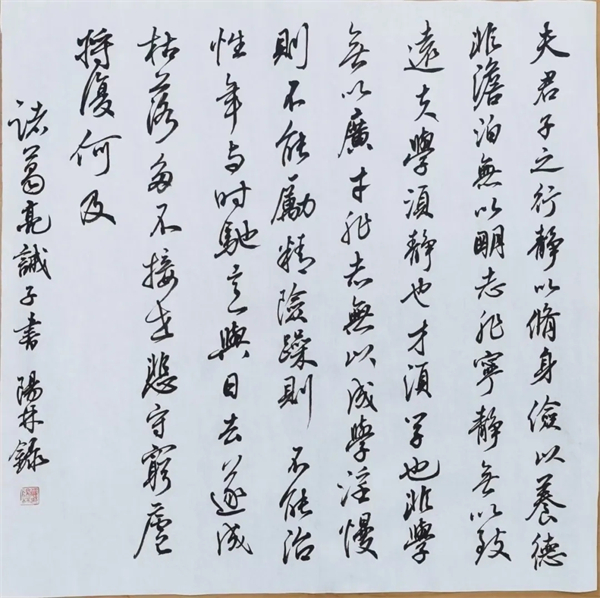 夫君子之行靜以脩身儉以養德
非澹泊無以明志非寧靜無以致
遠夫學須靜也才須學也非學
無以廣才非志無以成學淫慢
則不能勵精險躁則不能治
性年与时馳意與日去遂成
枯落多不接世悲守窮廬
將復何及
诸葛亮誡子書 陽林錄